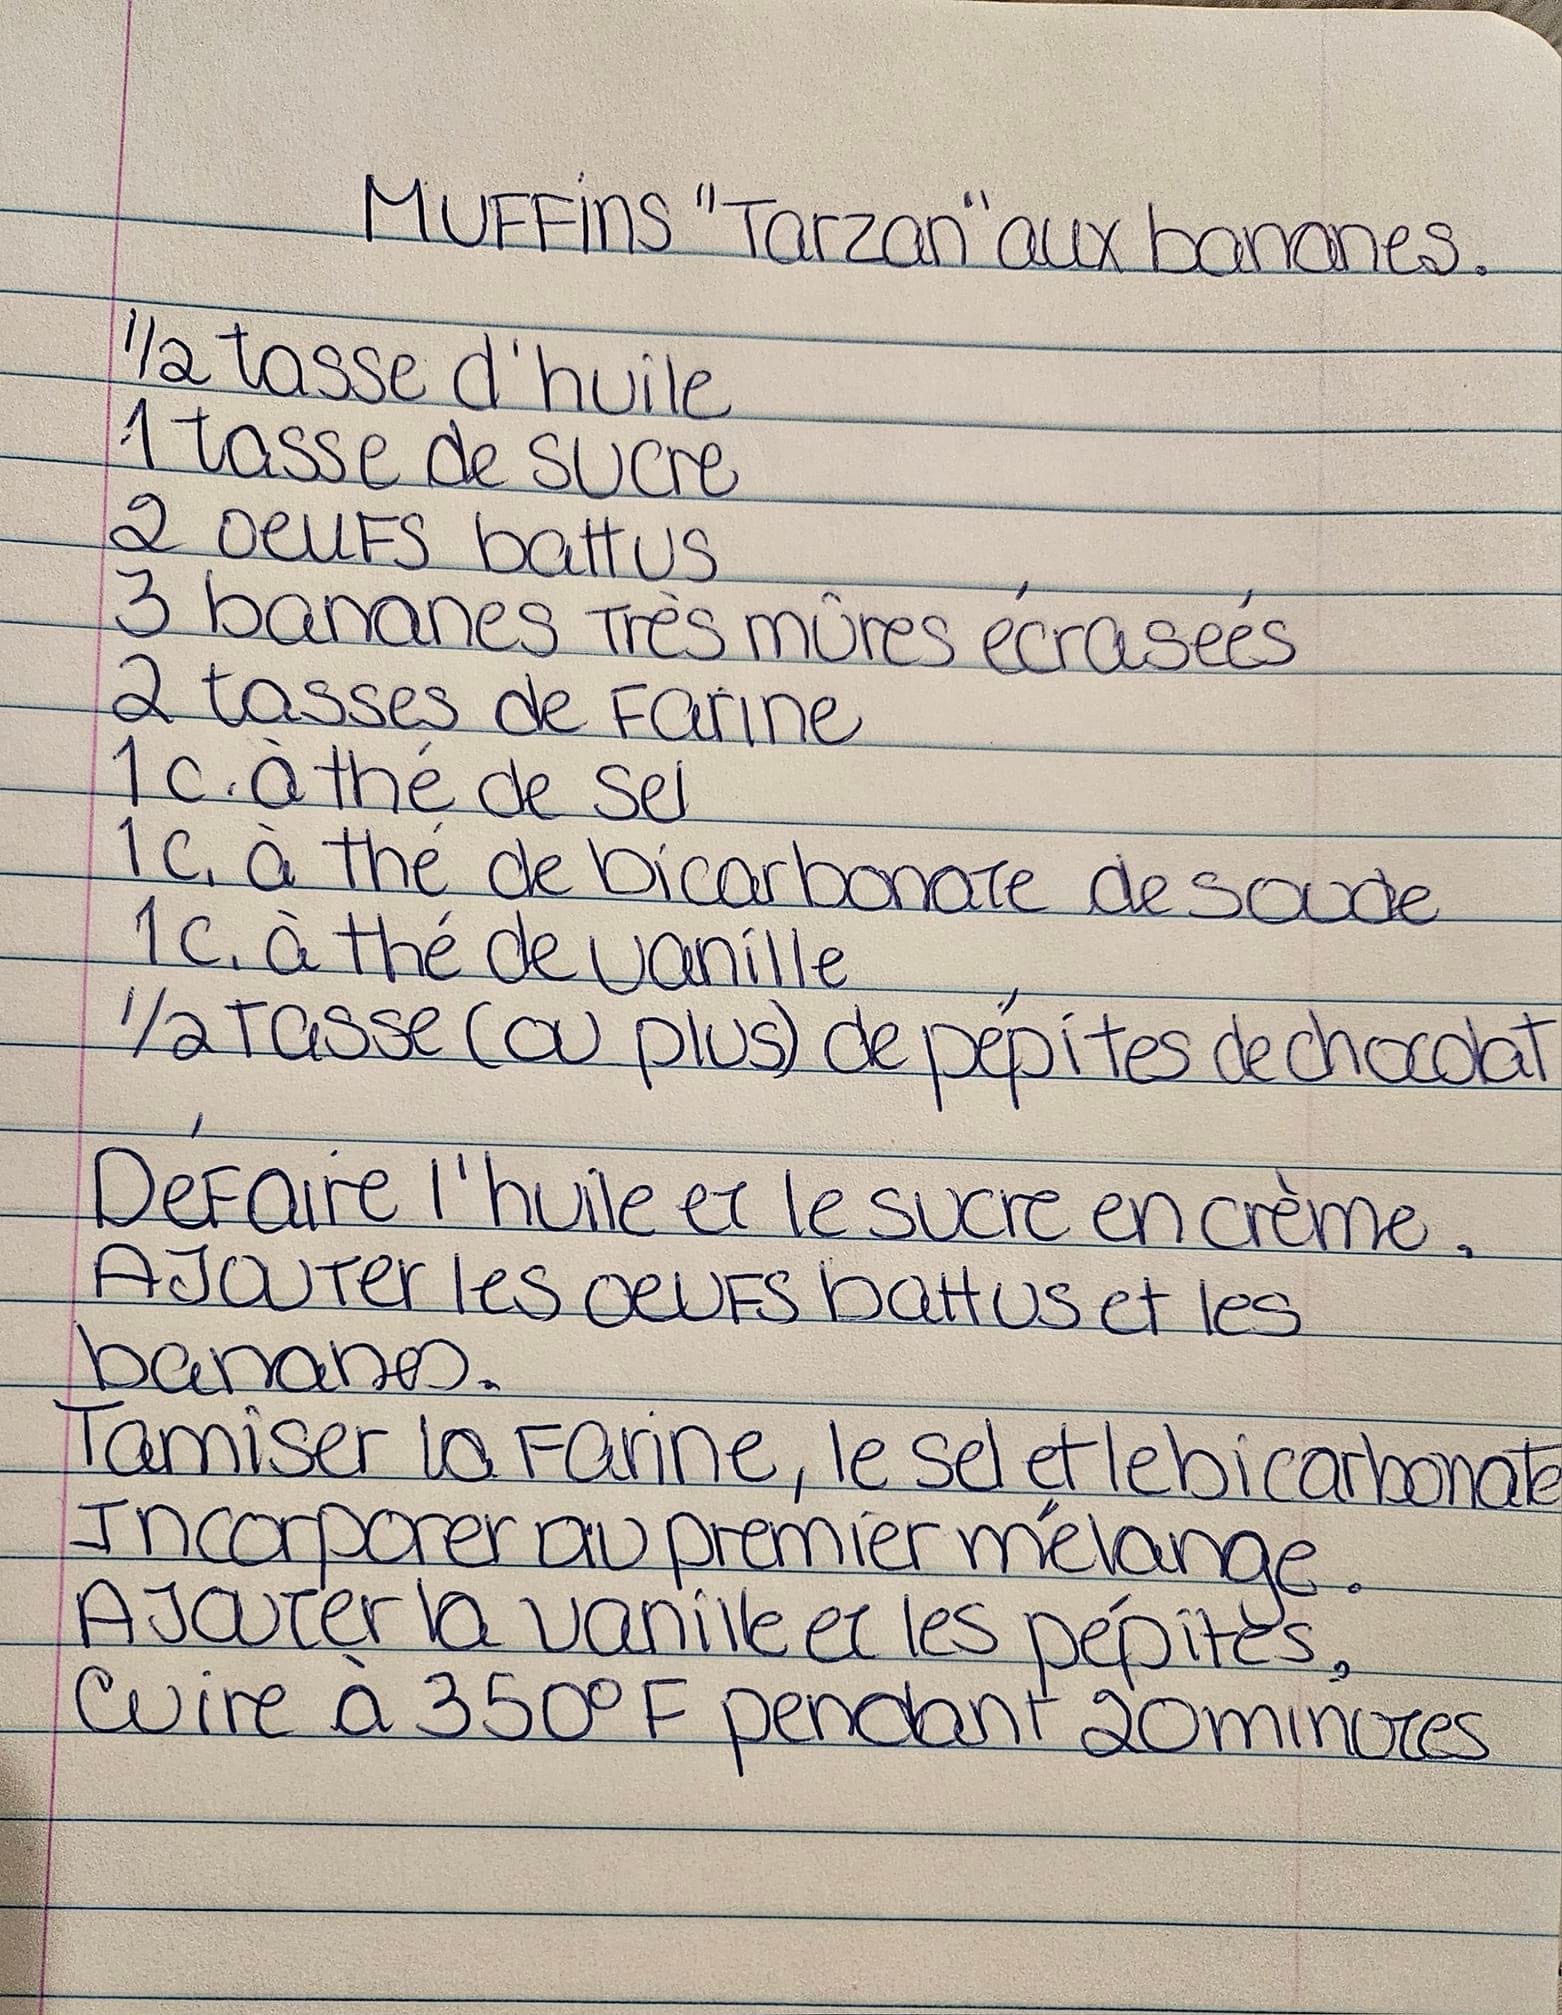 MUFFINS "Tarzan" aux bananes.
1/2 tasse d'huile
1 tasse de sucre
2 oeufs battus
3 bananes très mûres écrasées
2 tasses de farine
1 c. à thé de sel
1 c. à thé de bicarbonate de soude
1 c. à thé de vanille
1/2 tasse (ou plus) de pépites de chocolat
Défaire l'huile et le sucre en crème.
Ajouter les oeufs battus et les
bananes.
Tamiser la farine, le sel et le bicarbonate
Incorporer au premier mélange.
Ajouter la vanille et les pépites,
Cuire à 350°F pendant 20 minutes